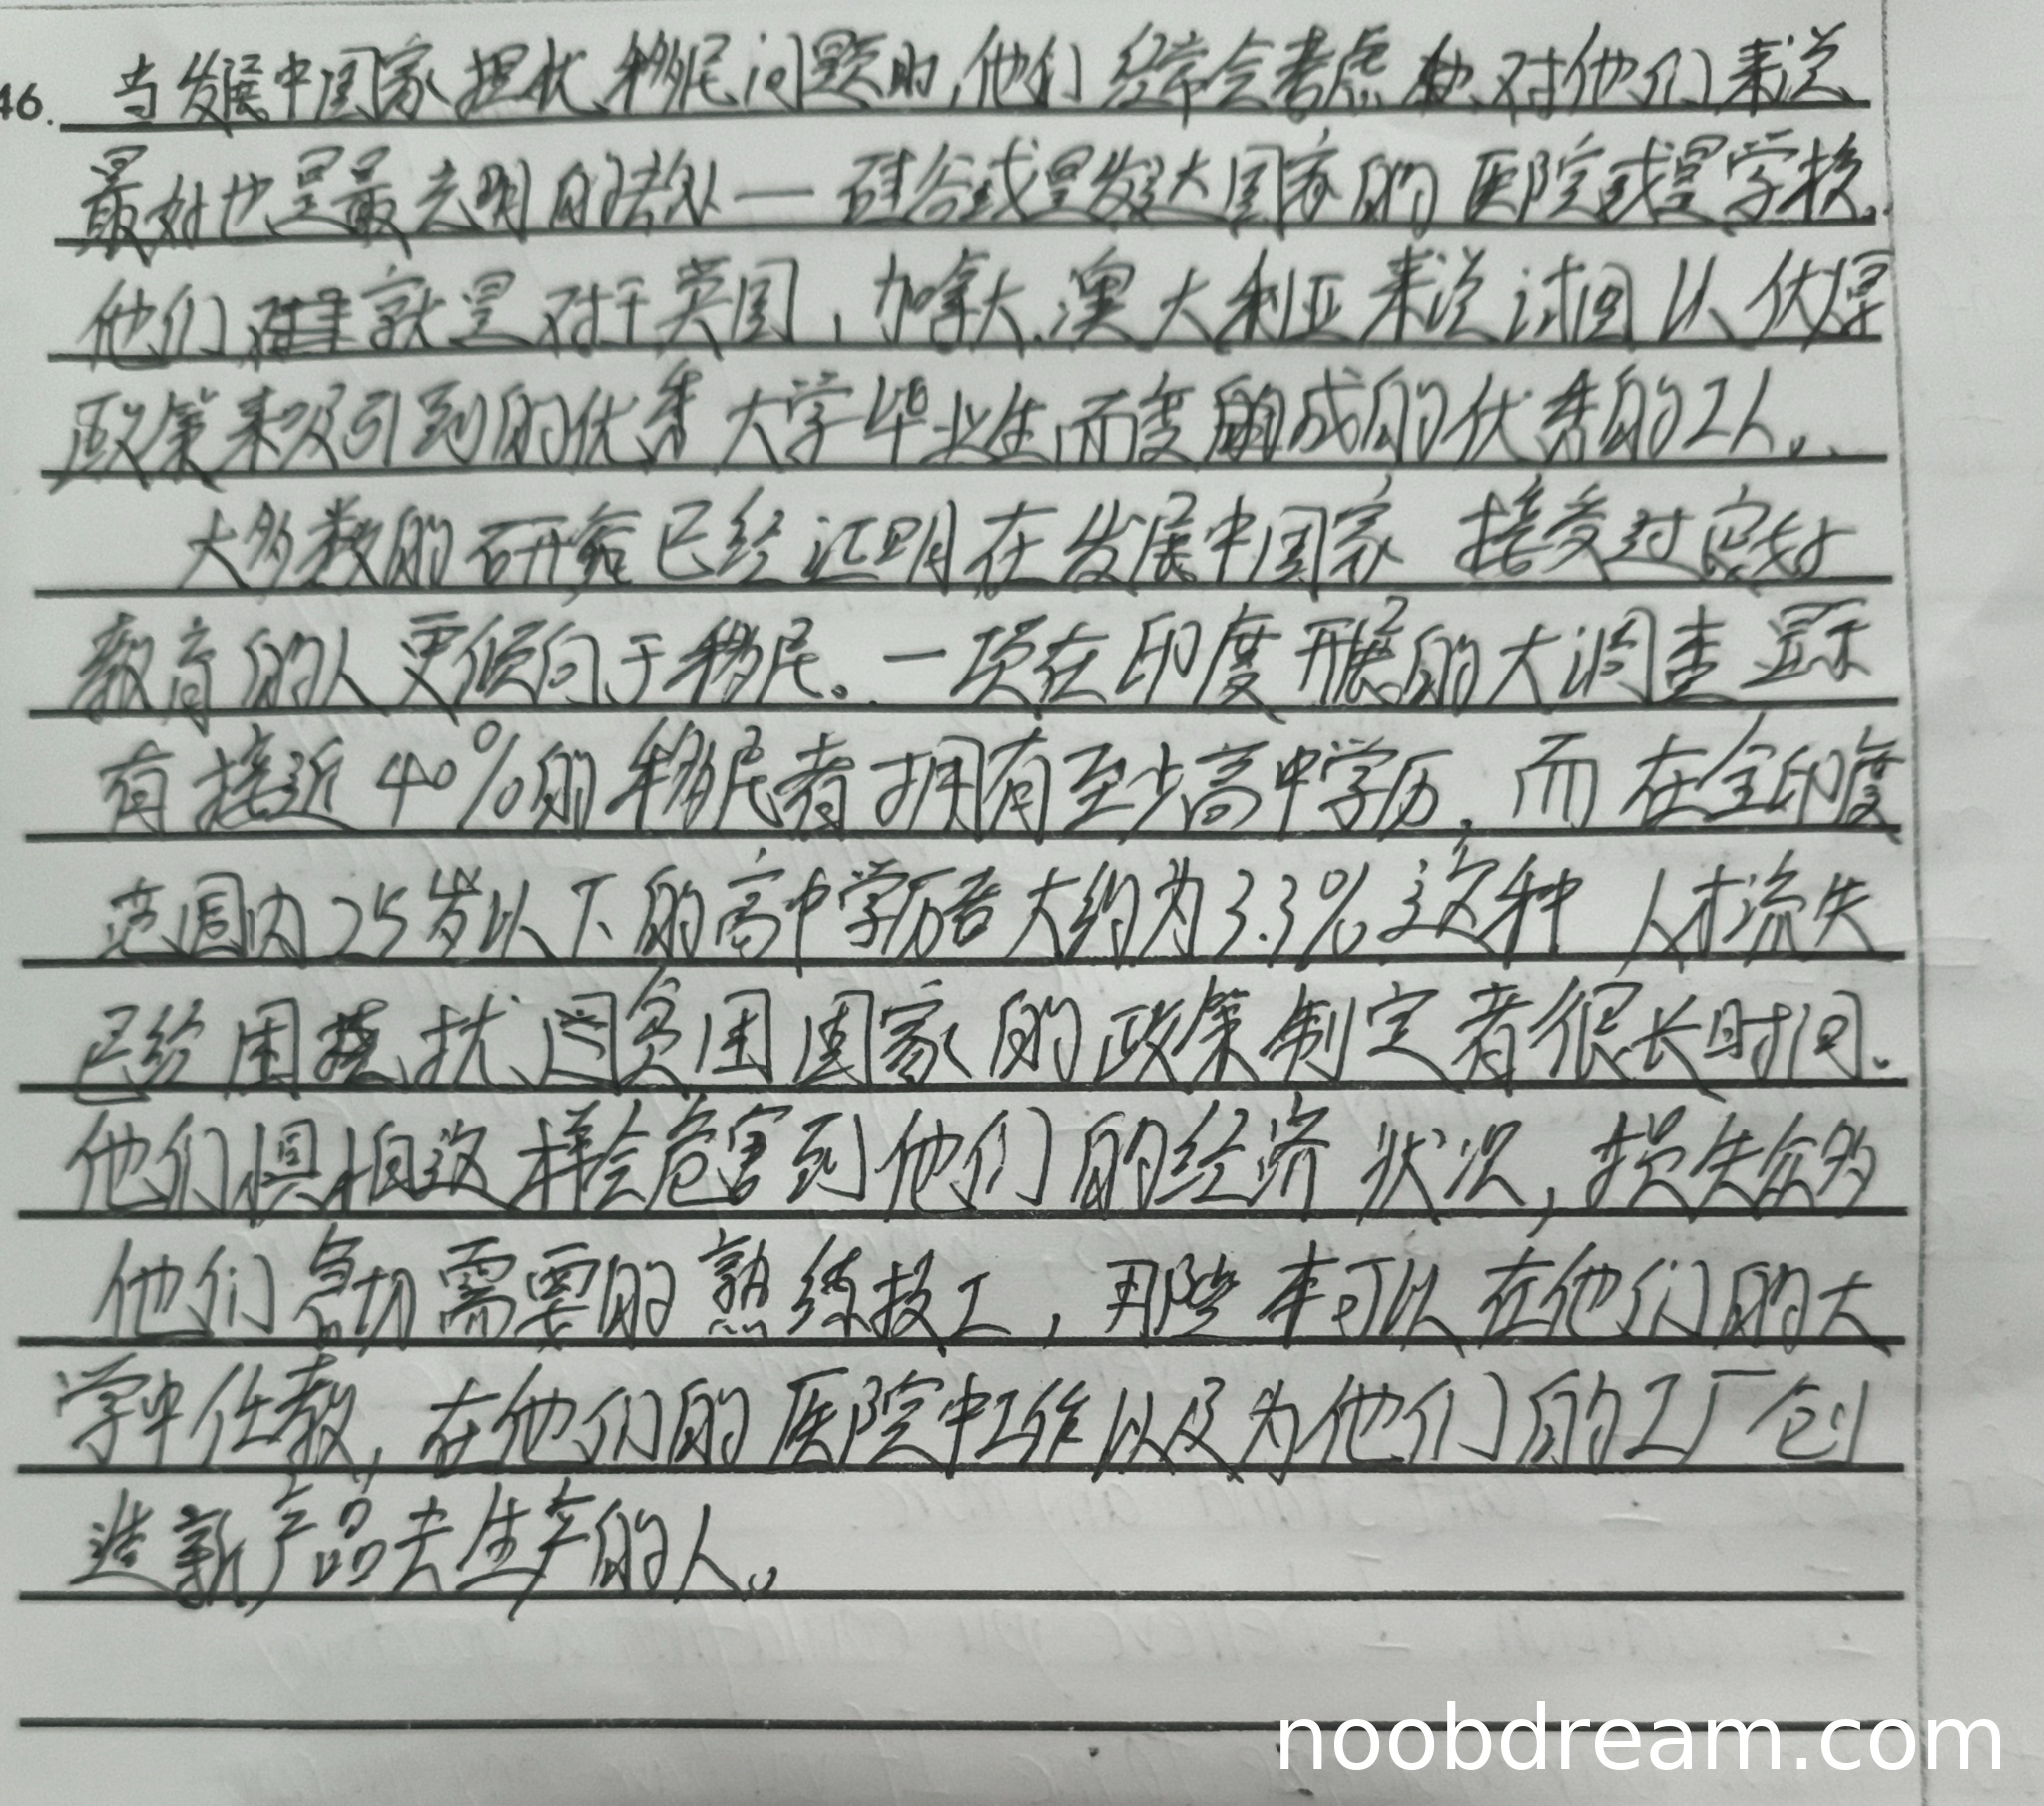 46. 当发展中国家担忧移民问题时,他们经常会考虑 对他们来说
最好也是最光明的 — 硅谷或是发达国家的医院或是学校。
他们 就是对于英国,加拿大、澳大利亚来说讨回以优厚
政策来吸引到的优秀大学毕业生而变 成的优秀的工人。
大多数的研究已经证明在发展中国家 接受过良好
教育的人更倾向于移民。一项在印度开展的大调查显示
有接近40%的移民者拥有至少高中学历,而在全印度
范围内25岁以下的高中学历者大约为3.3%。这种人才流失
已经困 扰 贫困国家的政策制定者很长时间。
他们惧怕这样会危害到他们的经济状况,损失众多
他们急切需要的熟练技工,那些本可以在他们的大
学中任教,在他们的医院中工作以及为他们的工厂创
造新产品去生产的人。
noobdream.com